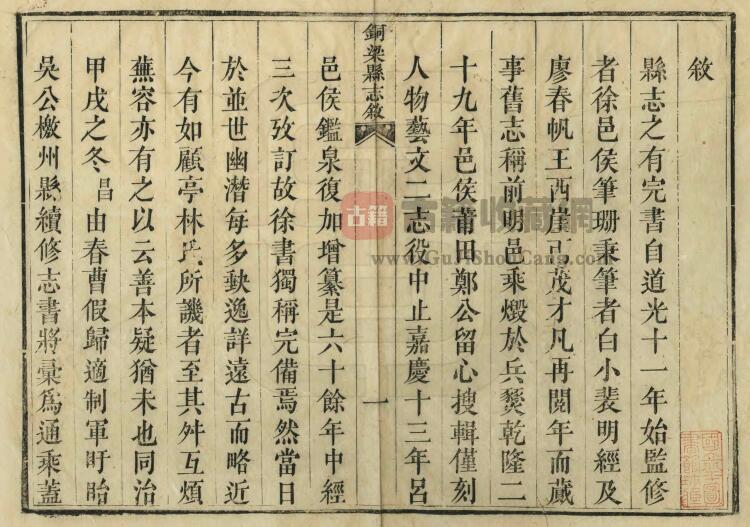 敘
縣志之有完書自道光十一年始監修
者徐邑侯筆珊秉筆者白小裴明經及
廖春帆王西崖茂才凡再閱年而蕆
事舊志稱前明邑乘燬於兵燹乾隆二
十九年邑侯莆田鄭公留心搜輯僅刻
人物藝文二志役中止嘉慶十三年呂
銅梁縣志敘
一
邑侯鑑泉復加增纂是六十餘年中經
三次攷訂故徐書獨稱完備焉然當日
於並世幽潛每多缺逸詳遠古而略近
今有如顧亭林氏所譏者至其舛互煩
蕪容亦有之以云善本疑猶未也同治
甲戌之冬昌由春曹假歸適制軍盱眙
吳公檄州縣續修志書將彙為通乘蓋
古籍 古籍收藏网
www.GuJiShouCang.com